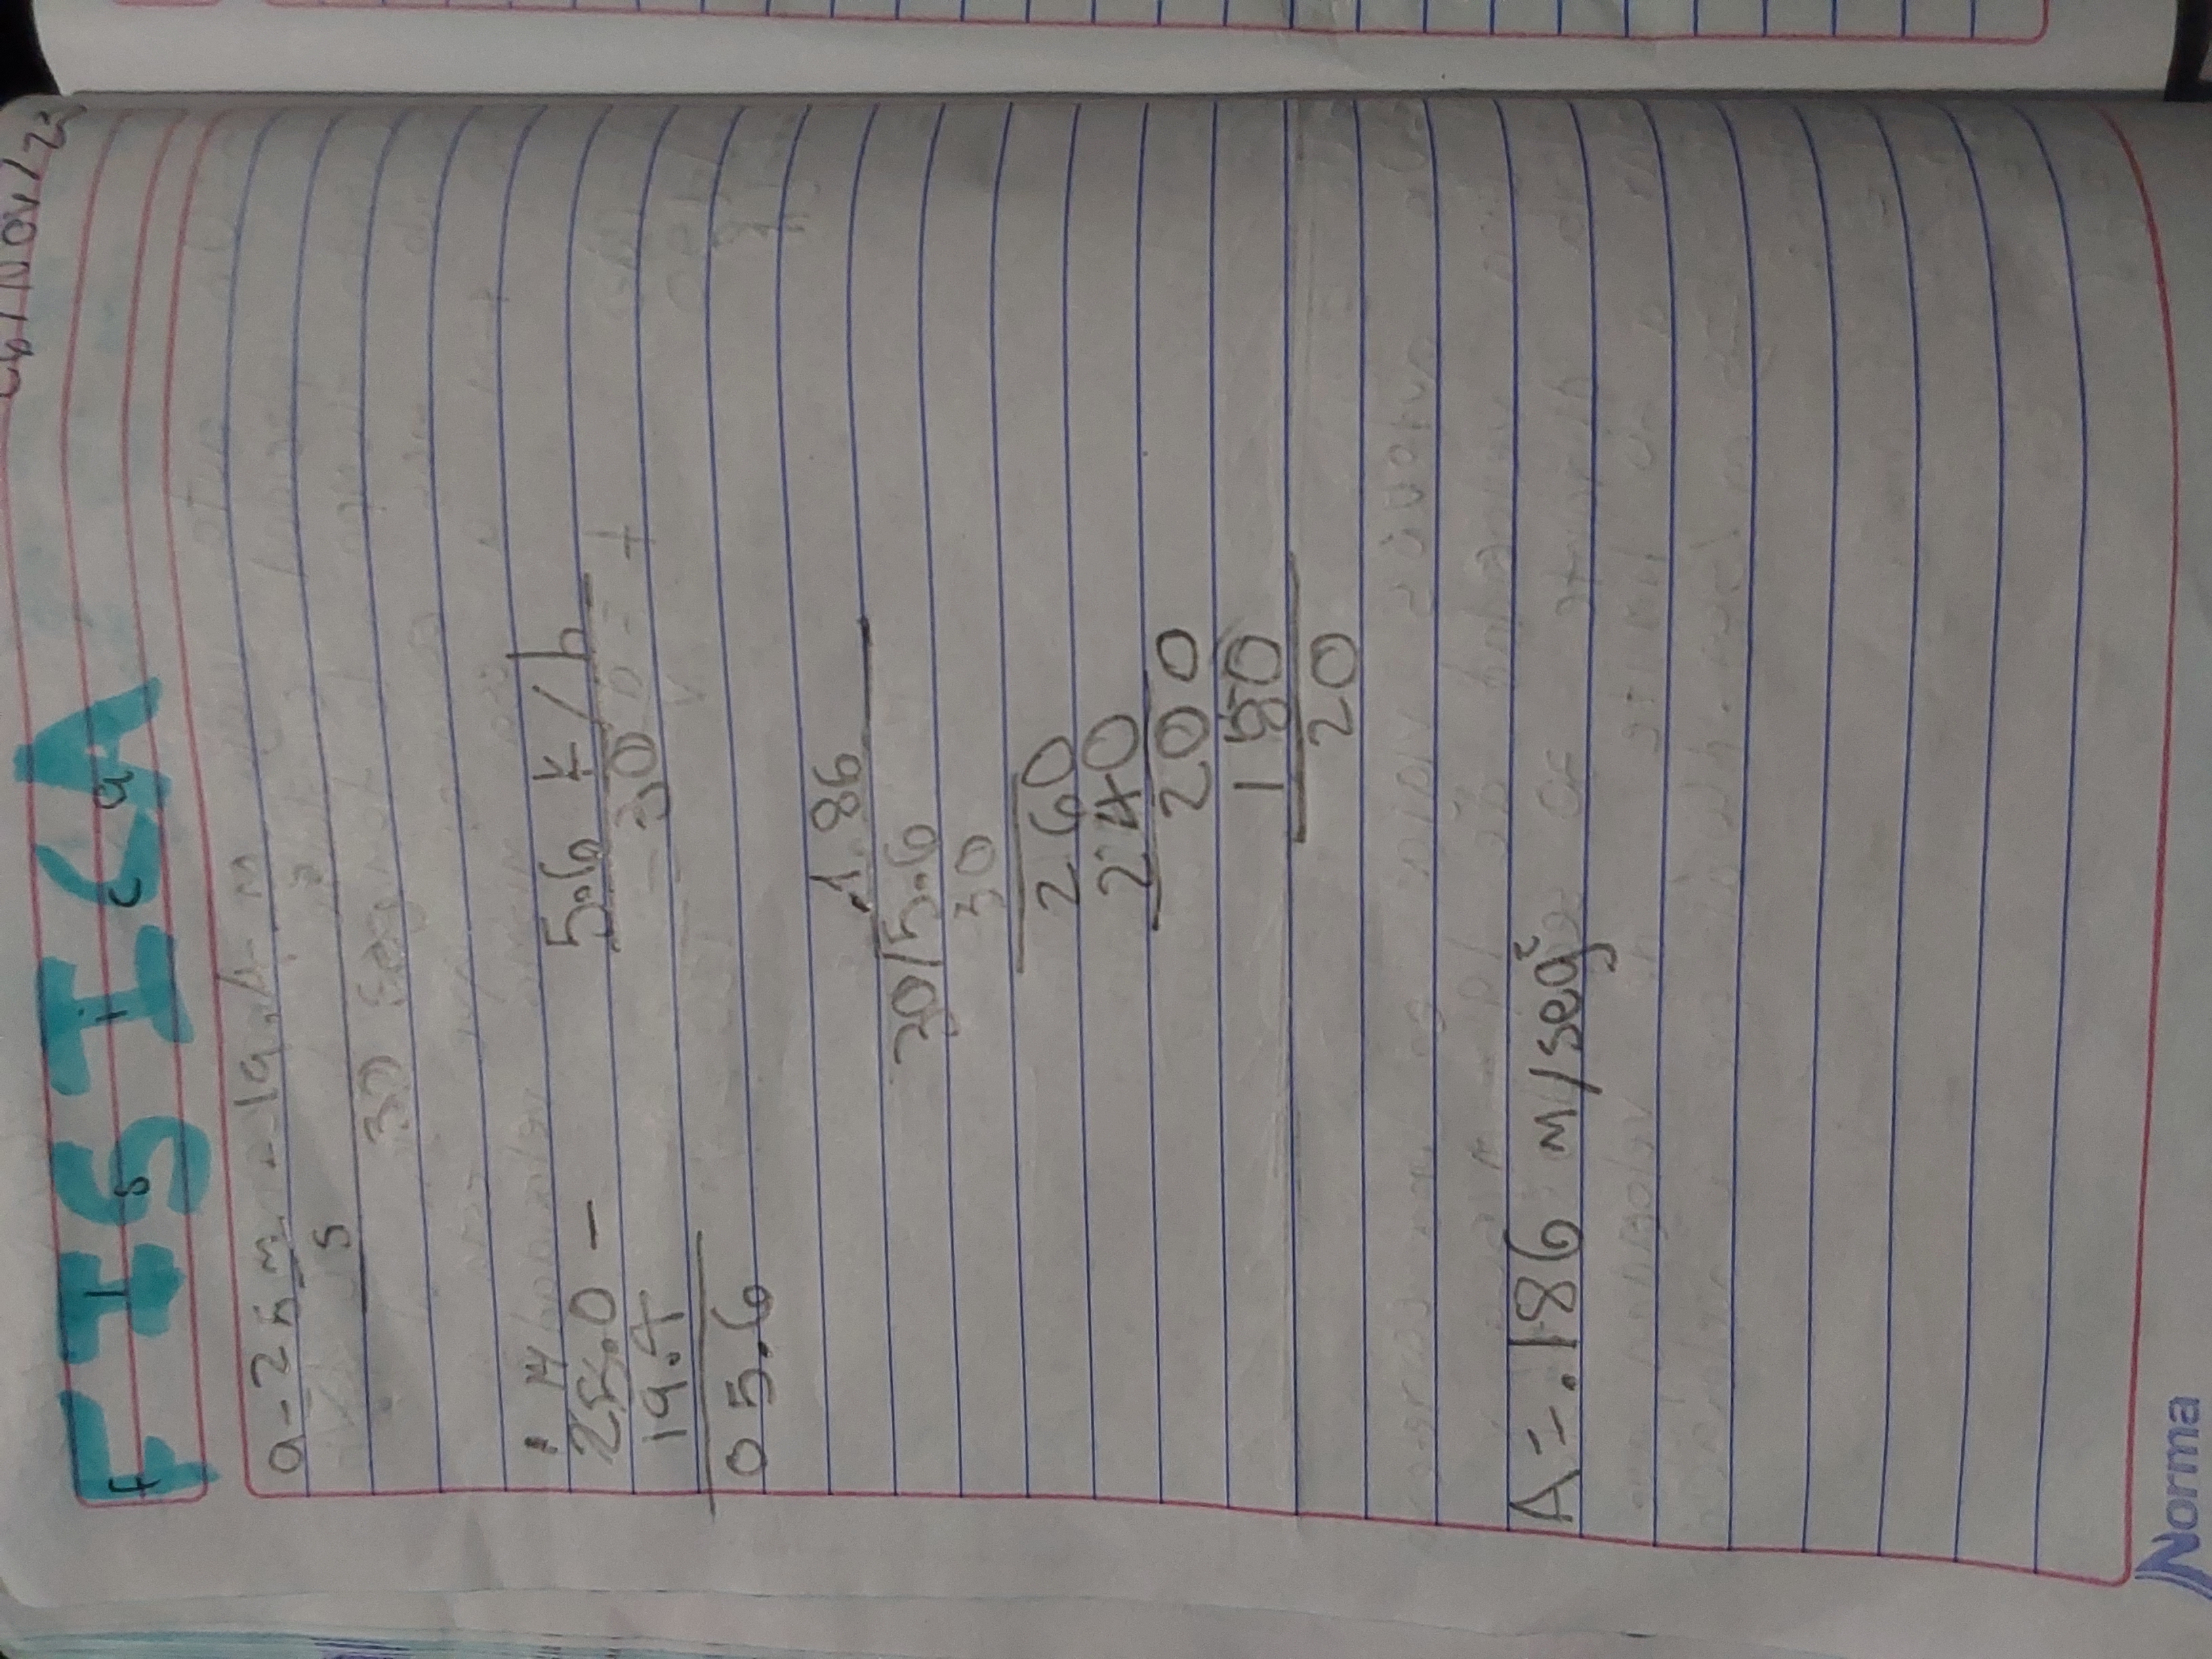 /Nov/23
FISICA
Fisica
a-25 m - 19.4 m
s
30 seg
25.0 -
19.4
05.6
5.6 k/h
30
.186
30/5.6
30
260
240
200
180
20
A=.186 m/seg²
Norma